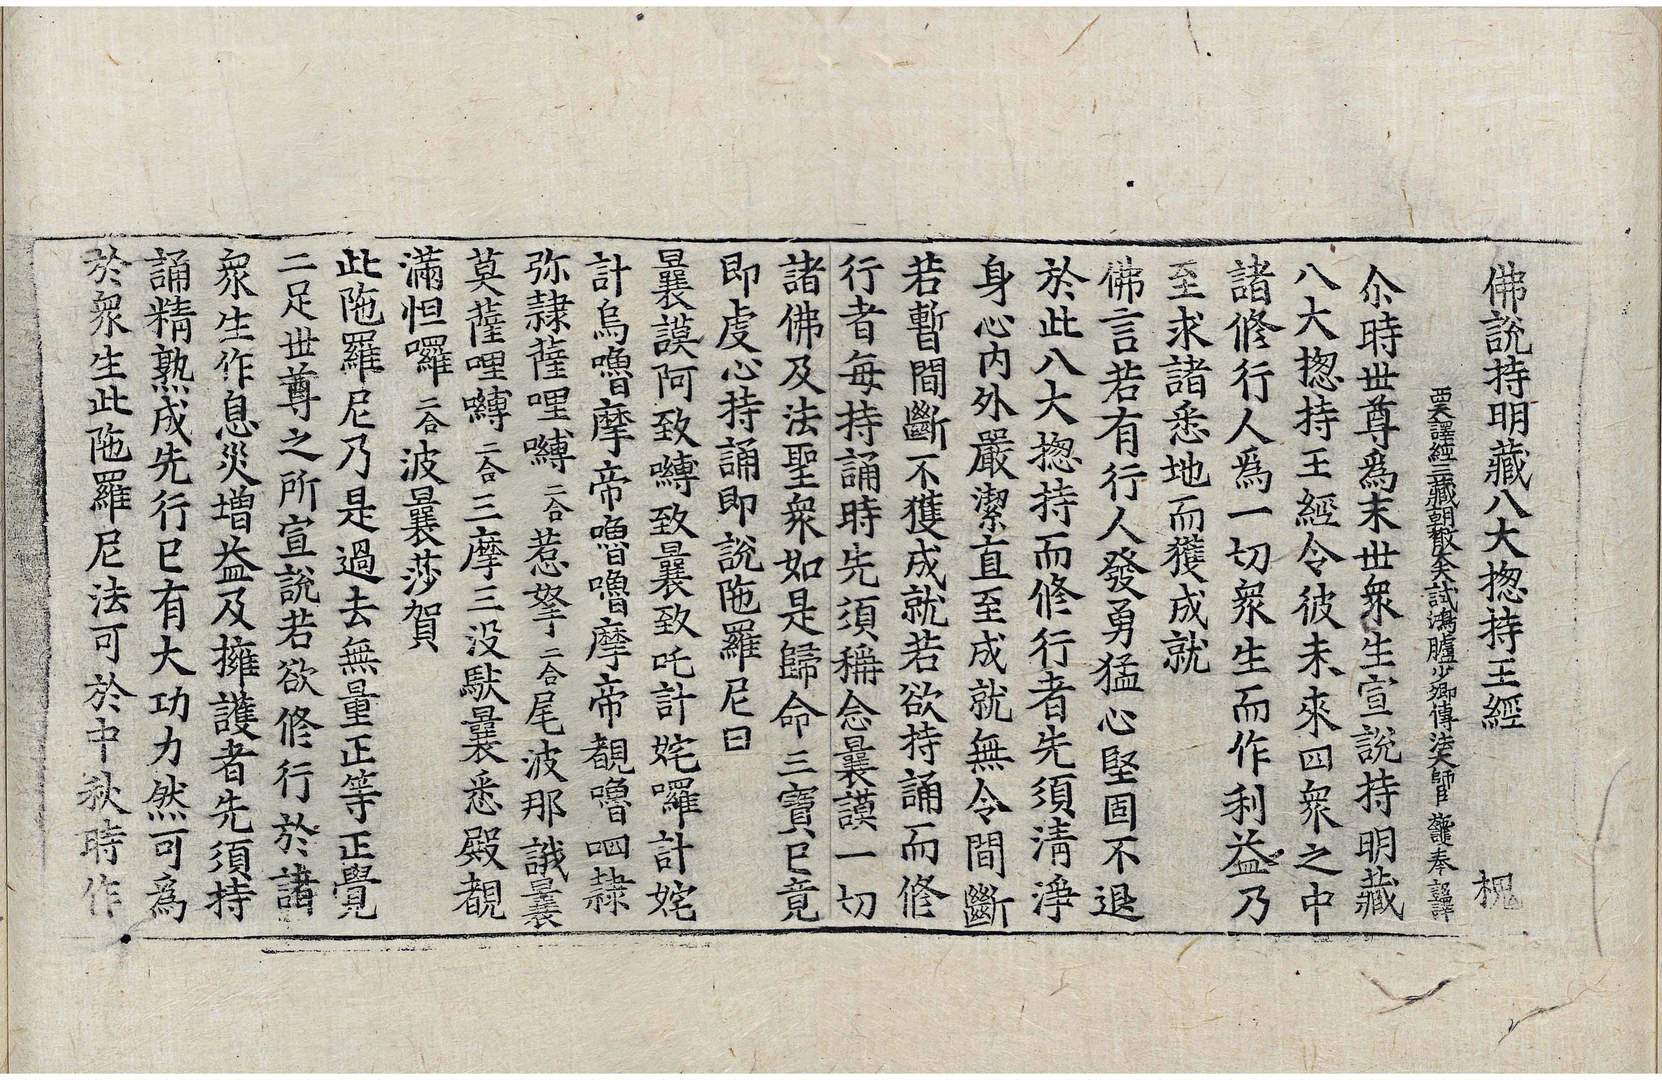 佛說持明藏八大揔持王經 槐
西天譯經三藏朝散大夫試鴻臚少卿傳法大師臣 施護奉 詔譯
尒時世尊爲末世衆生宣說持明藏
八大揔持王經令彼未來四衆之中
諸修行人爲一切衆生而作利益乃
至求諸悉地而獲成就
佛言若有行人發勇猛心堅固不退
於此八大揔持而修行者先須淸淨
身心內外嚴潔直至成就無令間斷
若暫間斷不獲成就若欲持誦而修
行者每持誦時先須稱念曩謨一切
諸佛及法聖衆如是歸命三寶已竟
即虔心持誦即說陁羅尼曰
曩謨阿致嚩致曩致吒計姹囉計姹
計烏嚕摩帝嚕嚕摩帝覩嚕呬隸
弥隸薩哩嚩二合惹拏二合尾波那誐曩
莫薩哩嚩二合三摩三没馱曩悉殿覩
滿怛囉二合波曩莎賀
此陁羅尼乃是過去無量正等正覺
二足世尊之所宣說若欲修行於諸
衆生作息災增益及擁護者先須持
誦精熟成先行已有大功力然可爲
於衆生此陁羅尼法可於中秋時作